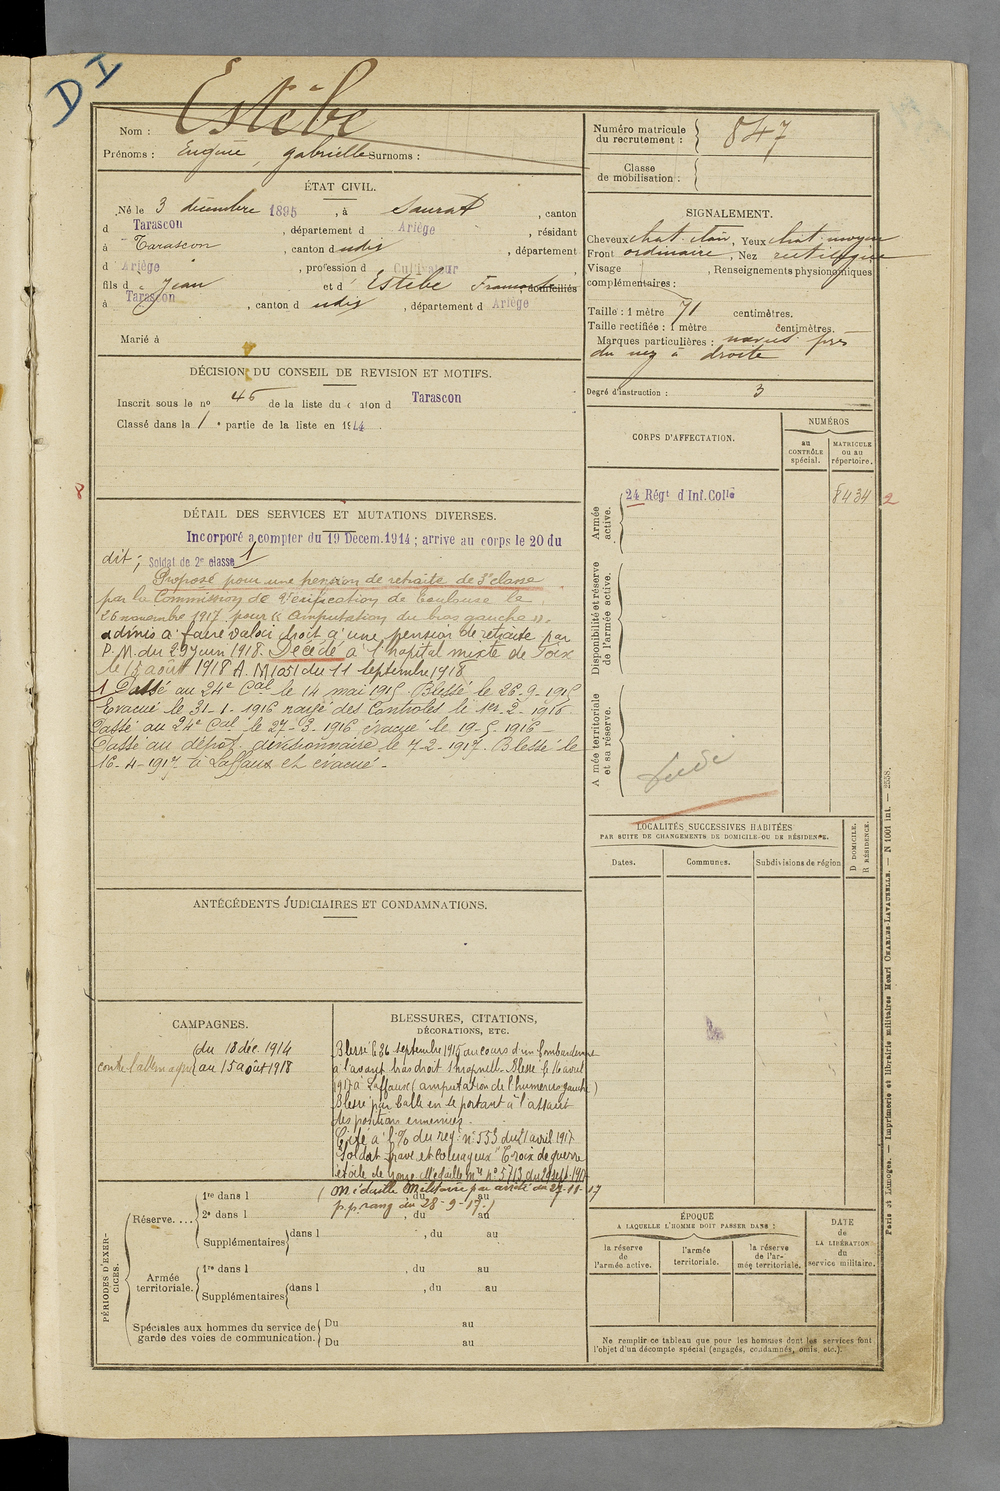 DI
Nom : Estèbe
Prénoms : Eugène, Gabrielle Surnoms :
Numéro matricule du recrutement : 847
Classe de mobilisation :
ÉTAT CIVIL.
Né le 3 décembre 1895, à Saurat, canton
d Tarascon, département d Ariège, résidant
à Tarascon, canton d udis, département
d Ariège, profession d Cultivateur,
fils d e Jean et d' Estèbe domiciliés
à Tarascon, canton d udis, département d Ariège
Marié à
SIGNALEMENT.
Cheveux chat. clair, Yeux chat. moyen
Front ordinaire, Nez rectiligne
Visage , Renseignements physionomiques
complémentaires :
Taille : 1 mètre 71 centimètres.
Taille rectifiée : 1 mètre centimètres.
Marques particulières : nævus près
du nez à droite
Degré d'instruction : 3
DÉCISION DU CONSEIL DE REVISION ET MOTIFS.
Inscrit sous le no 46 de la liste du canton d Tarascon
Classé dans la 1 e partie de la liste en 1914
CORPS D'AFFECTATION.
NUMÉROS
au CONTRÔLE spécial.
MATRICULE ou au répertoire.
Armée active.
24 Régt d'Inf. Colle
8434 2
Disponibilité et réserve de l'armée active.
Armée territoriale et sa réserve.
8
DÉTAIL DES SERVICES ET MUTATIONS DIVERSES.
Incorporé à compter du 19 Décem. 1914 ; arrivé au corps le 20 du
dit ; Soldat de 2e classe 1
Proposé pour une pension de retraite de 3e classe
par la Commission de Vérification de Toulouse le
26 novembre 1917 pour « amputation du bras gauche ».
admis à faire valoir droit à une pension de retraite par
D. M. du 29 juin 1918. Décédé à l'hôpital mixte de Foix
le 15 août 1918 A. M 1051 du 11 Septembre 1918
1 Passé au 24e Cal le 14 mai 1915 Blessé le 26-9-1915
Evacué le 31-1-1916 rayé des Controles le 1er-2-1916.
Passé au 24e Cal le 27-3-1916 évacué le 19-5-1916 -
Passé au dépôt divisionnaire le 7-2-1917. Blessé le
16-4-1917 à Laffaux et évacué.-
LOCALITÉS SUCCESSIVES HABITÉES
PAR SUITE DE CHANGEMENTS DE DOMICILE OU DE RÉSIDENCE.
Dates.
Communes.
Subdivisions de région
D DOMICILE.
R RÉSIDENCE.
ANTÉCÉDENTS JUDICIAIRES ET CONDAMNATIONS.
CAMPAGNES.
contre l'allemagne
du 18 déc. 1914
au 15 août 1918
BLESSURES, CITATIONS,
DÉCORATIONS, ETC.
Blessé le 26 septembre 1915 au cours d'un bombardement
à l'avant bras droit shrapnell. Blessé le 16 avril
1917 à Laffaux (amputation de l'humérus gauche)
Blessé par balle en se portant à l'assaut
des positions ennemies.
Cité à l'% du reg. n° 553 du 21 avril 1917
Soldat brave et courageux Croix de guerre
étoile de bronze Médaille Mre n° 5713 du 29 sept. 1917
(Médaille Militaire par arrêté du 27-11-17
p.p. rang du 28-9-17.)
PÉRIODES D'EXERCICES.
Réserve....
1re dans l , du au
2e dans l , du au
Supplémentaires dans l , du au
Armée territoriale.
1re dans l , du au
Supplémentaires dans l , du au
Spéciales aux hommes du service de garde des voies de communication.
Du au
Du au
ÉPOQUE
A LAQUELLE L'HOMME DOIT PASSER DANS :
la réserve de l'armée active.
l'armée territoriale.
la réserve de l'armée territoriale.
DATE de LA LIBÉRATION du service militaire.
Ne remplir ce tableau que pour les hommes dont les services font
l'objet d'un décompte spécial (engagés, condamnés, omis, etc.).
Paris et Limoges. — Imprimerie et librairie militaires Henri CHARLES-LAVAUZELLE. — N 1001 int. — 2558.